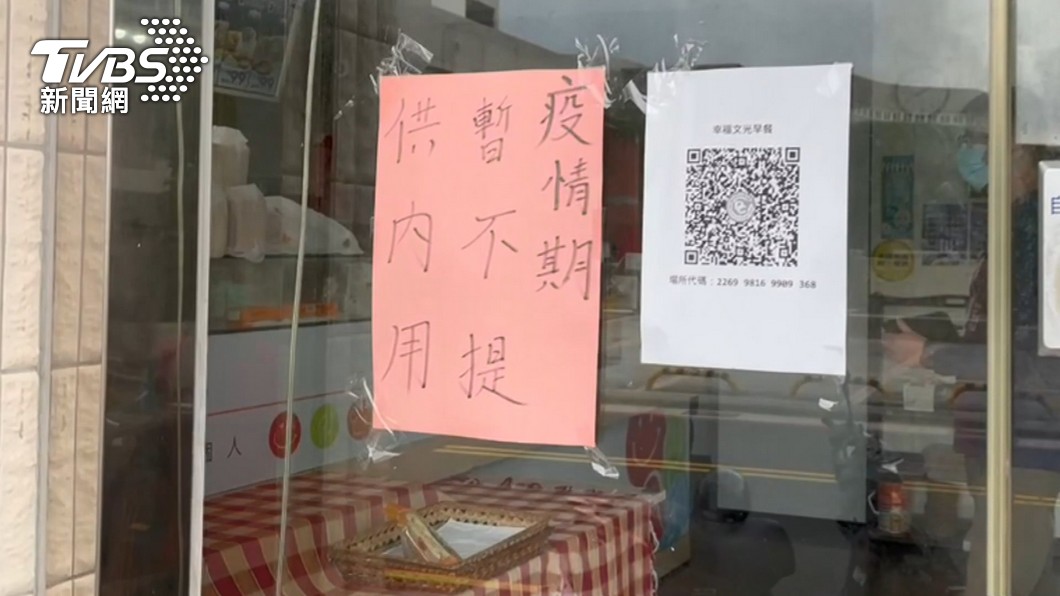 TVBS
新聞網
疫情期
暫不提
供內用
幸福文光早餐
場所代碼：2269 9816 9909 368
個人